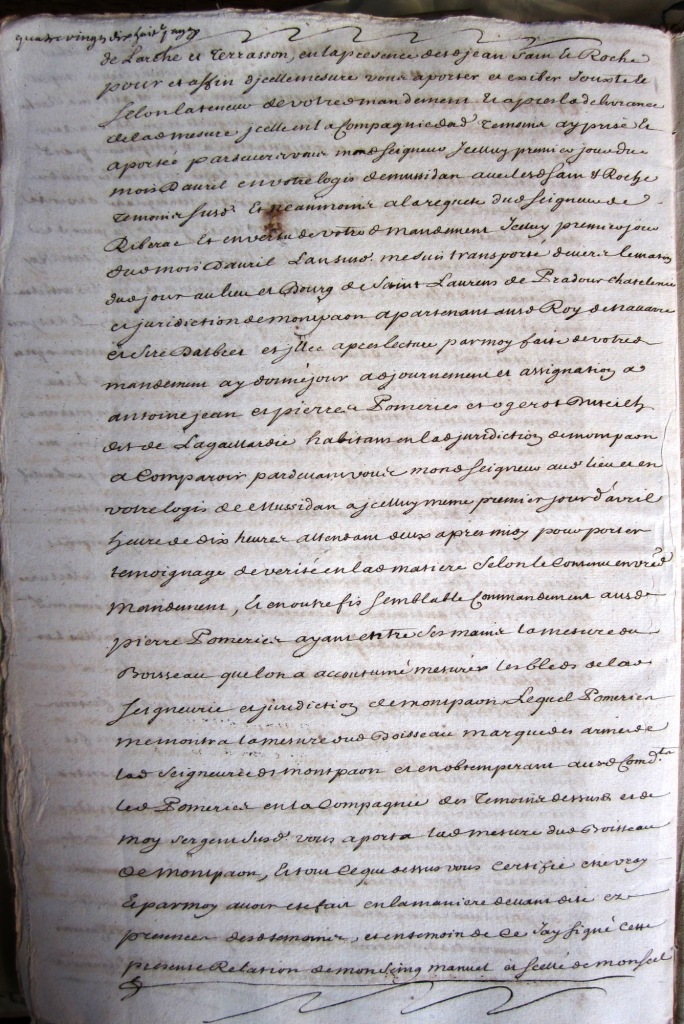 quatre vingts dix huit pages
de Larche et Terrasson, en la presence desd jean Sam & Roche
pour et affin d jcelle mesure vous aporter et exiber Soubs le
Selon la teneur de votre d mandement Et apres la delivrance
de lad mesure jcelle en la Compagnie desd Temoins ay prise Et
aportée pardevers vous mond seigneur Jceluy premier jour du
mois Davril en votre logis de mussidan avec lesd Sam & Roche
Temoins susd Et neanmoins a la requete dud Seigneur de
Riberac Et en vertu de votre d mandement Jceluy premier jour
dud mois Davril Lan susd. me suis transporté devers le matin
dud jour au lieu et Bourg de Saint Laurens de Pradoux chatelenie
et juridiction de monpaon apartenant aud Roy de navarre
et Sire Dalbret et jllec apres lecture par moy faite de votre d
mandement ay donné jour adjournement et assignation a
antoine jean et pierre Pomeries et ogerot
dit de Lagaillardie habitans en lad juridiction de monpaon
a Comparoir pardevant vous mond Seigneur aud lieu et en
votre logis de Mussidan a jceluy meme premier jour d'avril
heure de dix heures attendant deux apres midy pour porter
temoignage de verité en lad matiere Selon le Contenu en vre d
Mandement, Et en outre fis semblable Commandement aud
pierre Pomeries ayant entre ses mains la mesure du
Boisseau que lon a accoutumé mesurer les bleds de lad
Seigneurie et juridiction de montpaon Lequel Pomeries
me montra la mesure dud Boisseau marqué des armes de
lad Seigneurie de montpaon et en obtemperant aud Comd.t
led Pomeries en la Compagnie des Temoins dessusd et de
moy sergent susd vous aporta lad mesure dud Boisseau
de montpaon, Et tout ce que dessus vous certifie etre vray
Et par moy avoir eté fait en la maniere devant dite ez
presences desd temoins, et en temoin de ce Jay signé cette
presente Relation de mon seing manuel et scellé de mon seel